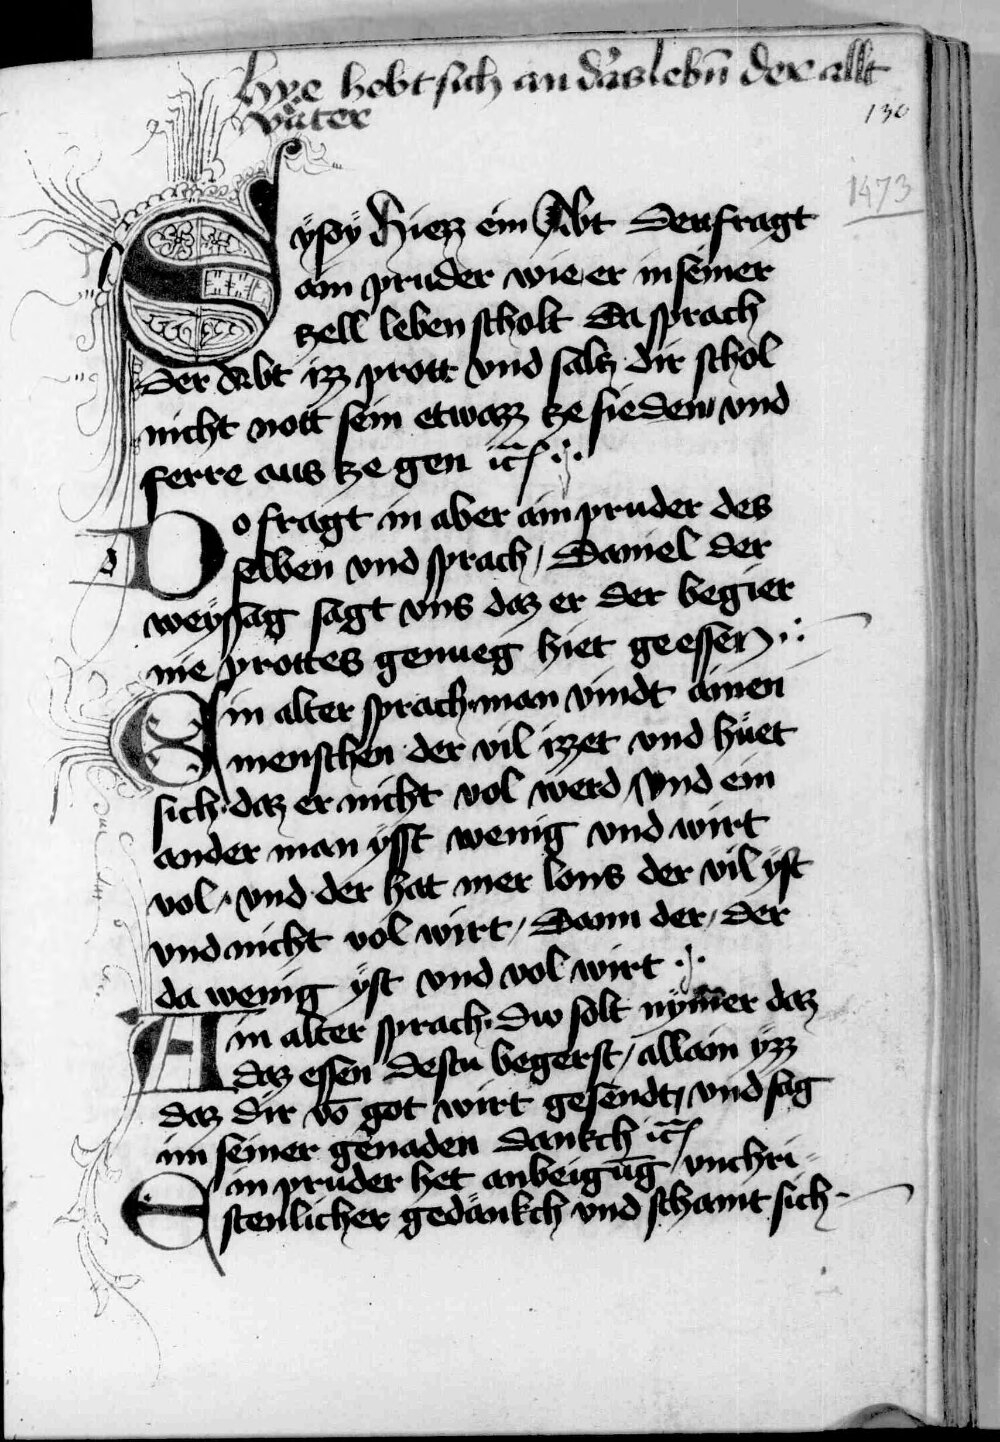 hye hebt sich an das lebn̄ der allt
väter
130
1473
Sÿsoÿ hiezz ein Abt Den fragt
ain pruder wie er in seiner
zell leben scholt Da sprach
der Abt izz prott vnd saltz dir schol
nicht nott sein etwazz ze sieden vnd
ferre aus ze gen
Do fragt in aber ain pruder des
selben vnd sprach / Daniel der
weyssag sagt vns daz er der begier
nie prottes genueg hiet geessen
Ein alter sprach man vindt ainen
menschen der vil izzet vnd hüet
sich daz er nicht vol werd / Vnd ein
ander man ÿsst wenig vnd wirt
vol / vnd der hat mer lons der vil ÿst
vnd nicht vol wirt / Dann der / der
da wenig ÿst vnd vol wirt
Ain alter sprach Dw solt nÿm̄er daz
daz essen destu begerst / allain ÿzz
daz dir vō got wirt gesendt / vnd sag
im seiner genaden dankch
Ein pruder het anbeigūg vnchri-
stenlicher gedänkch vnd schamt sich